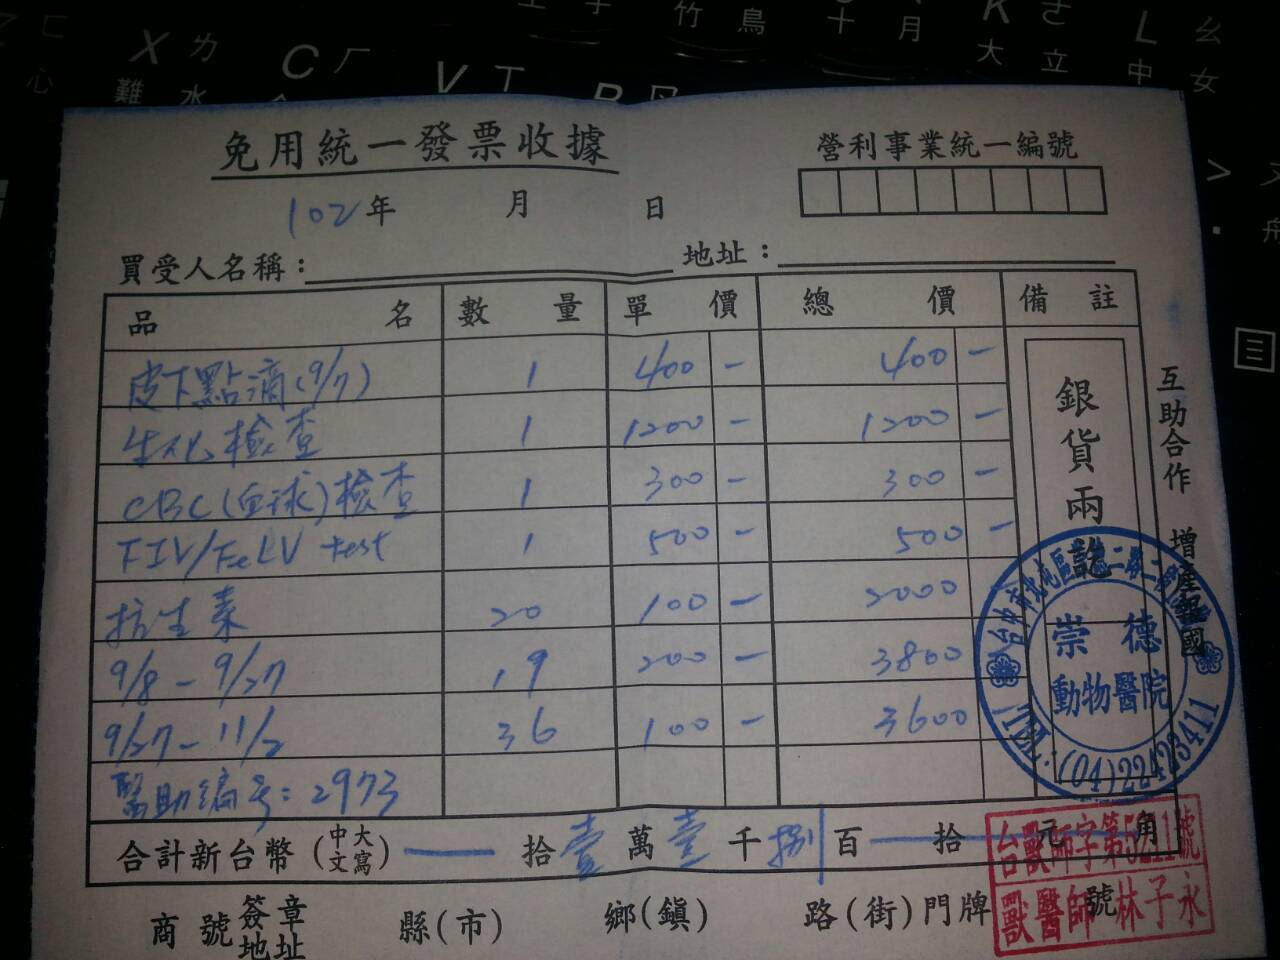 X ㄌ 難 水
C ㄏ
V
K 大
ㄜ 立
L 中
ㄠ 女
竹 鳥 十 月
ㄈ 心
免用統一發票收據
營利事業統一編號
102年 月 日
買受人名稱： 地址：
品 名 數 量 單 價 總 價 備 註
皮下點滴(9/7) 1 400 - 400 -
生化檢查 1 1200 - 1200 -
CBC(血球)檢查 1 300 - 300 -
FIV/FeLV test 1 500 - 500 -
抗生素 20 100 - 2000 -
9/8 - 9/27 19 200 - 3800
9/27 - 11/2 36 100 - 3600
醫助編号: 2973
銀貨兩訖
互助合作 增產報國
崇德
動物醫院
TEL:(04)22423411
合計新台幣(中文大寫) 拾壹萬壹千捌百 拾 元 角
台獸師字第5211號
獸醫師 林子永
商號簽章地址 縣(市) 鄉(鎮) 路(街)門牌 號